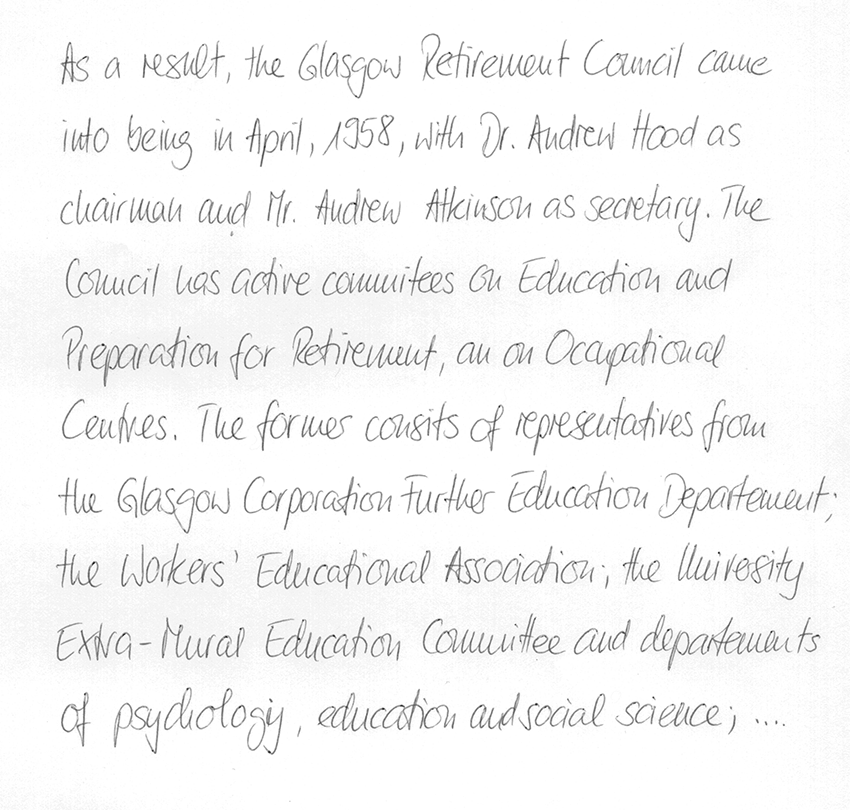 As a result, the Glasgow Retirement Council came
into being in April, 1958, with Dr. Andrew Hood as
chairman and Mr. Andrew Atkinson as secretary. The
Council has active commitees on Education and
Preparation for Retirement, an on Ocupational
Centres. The former consits of representatives from
the Glasgow Corporation Further Education Departement;
the Workers' Educational Association; the Univesity
Extra-Mural Education Committee and departements
of psychology, education and social science; ....